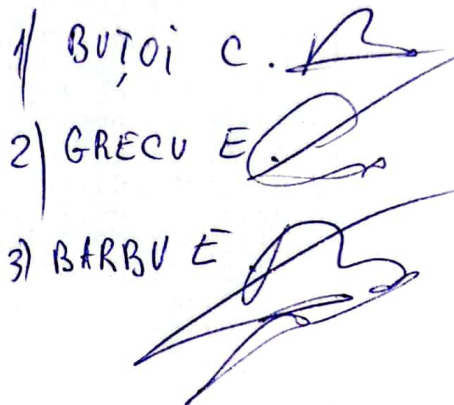 1) BUȚOI C.
2) GRECU E.
3) BARBU E